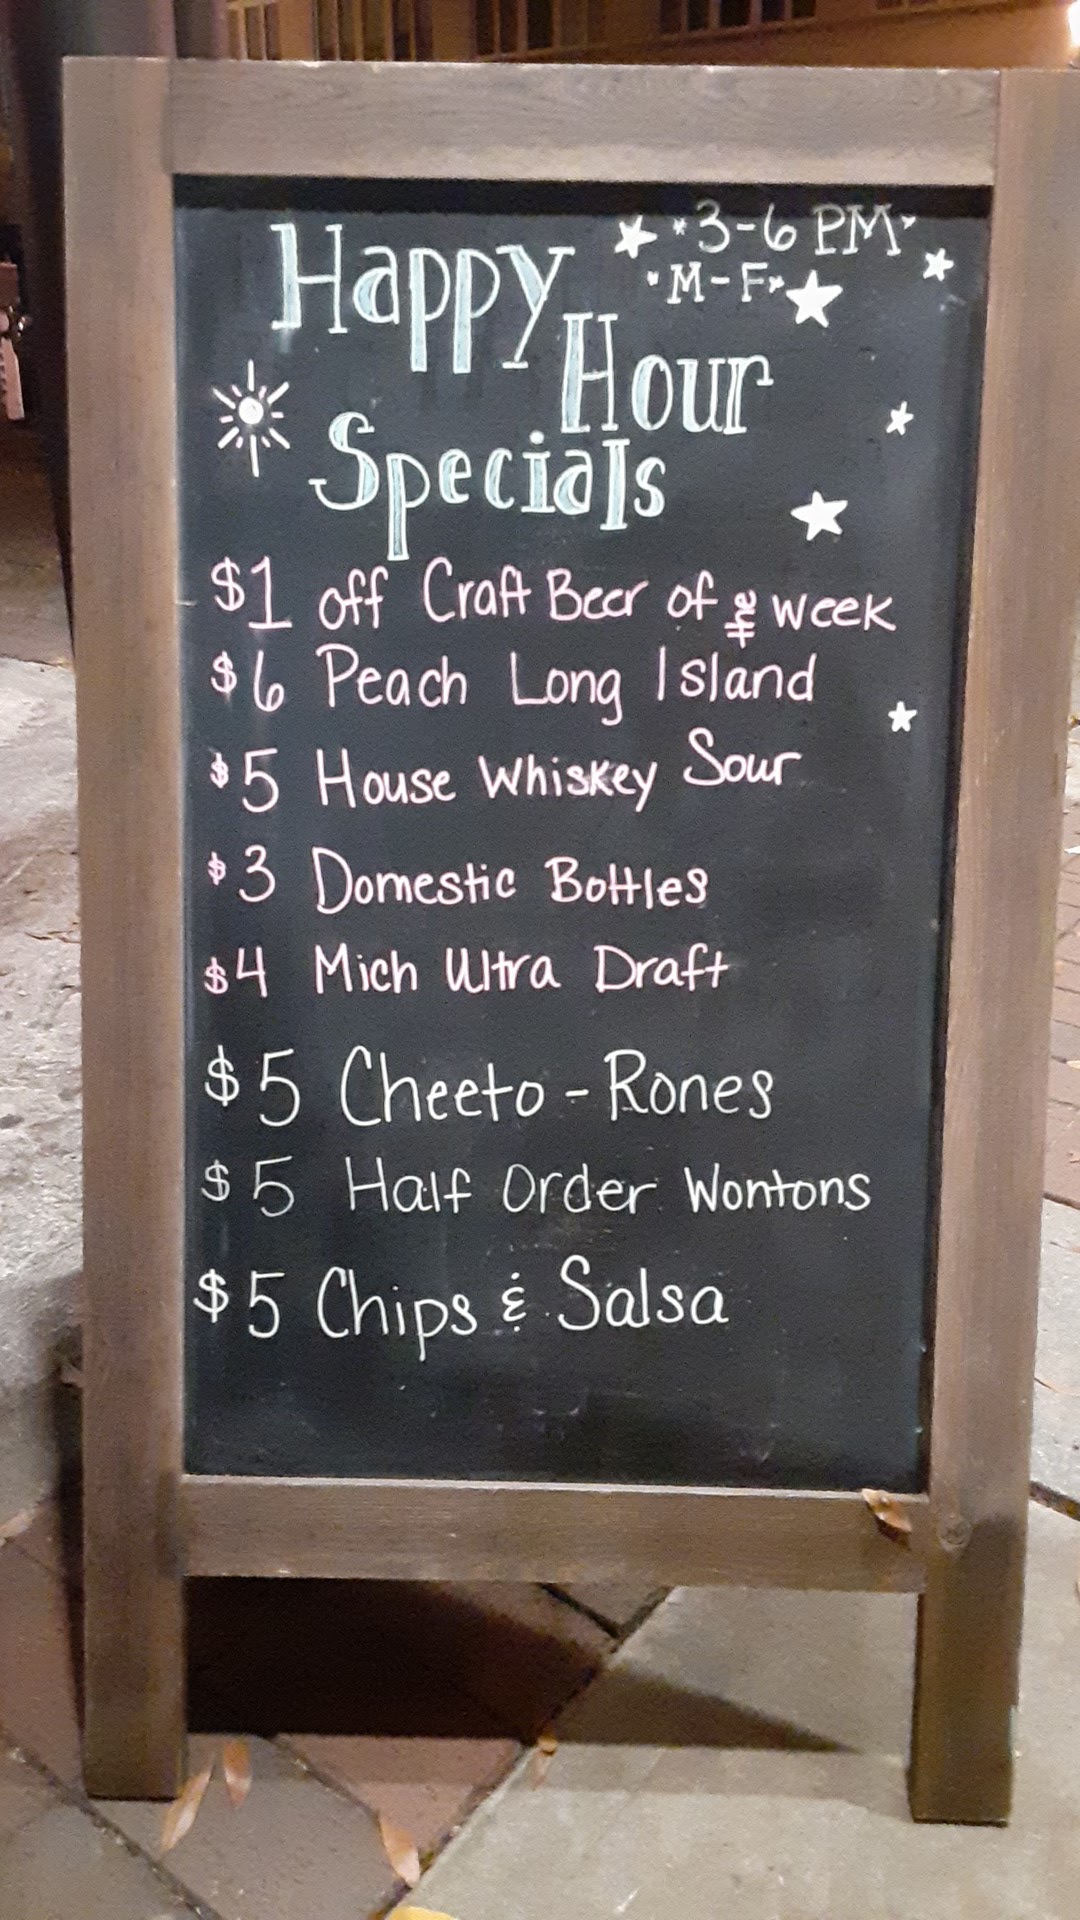 Happy
3-6 PM
M-F
Hour
Specials
$1 off Craft Beer of the week
$6 Peach Long Island
$5 House Whiskey Sour
$3 Domestic Bottles
$4 Mich Ultra Draft
$5 Cheeto-Rones
$5 Half Order Wontons
$5 Chips & Salsa